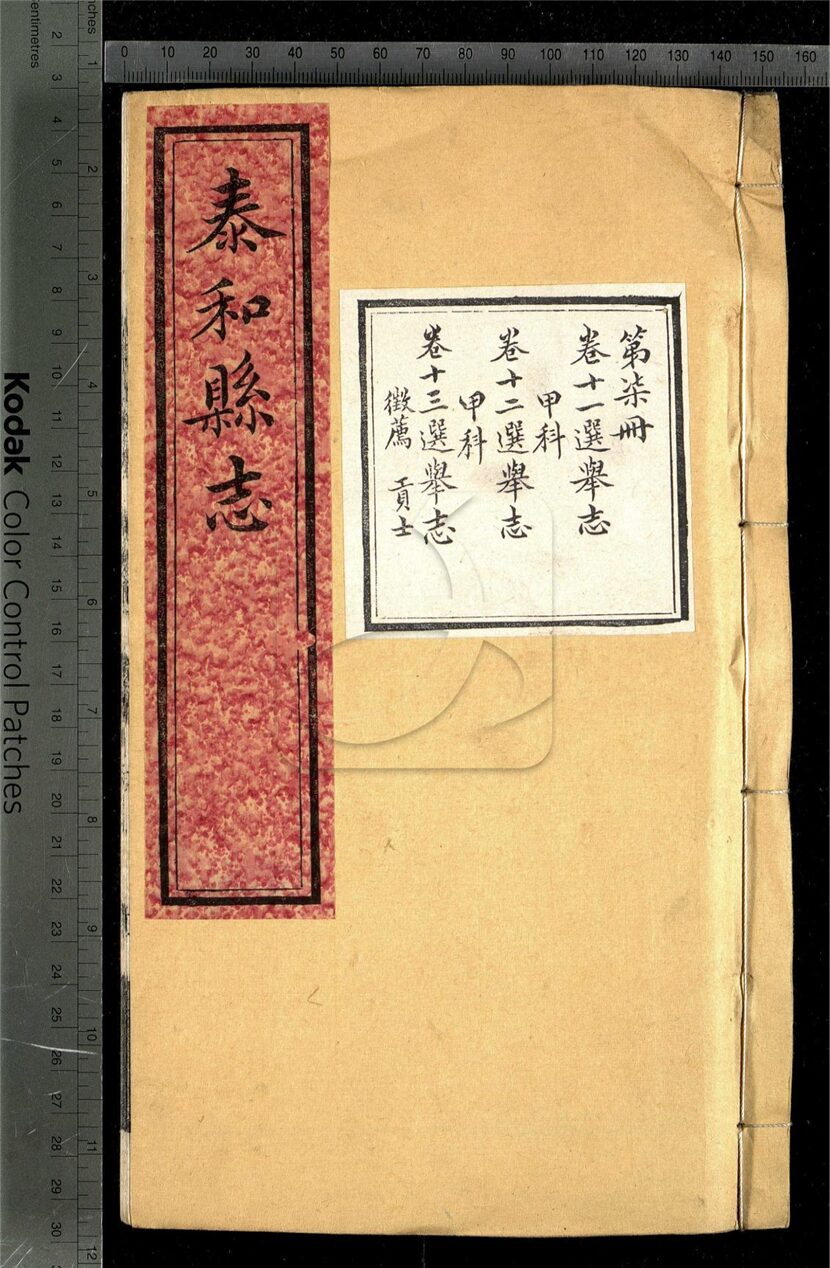 泰和縣志
第柒冊
卷十一選舉志
甲科
卷十二選舉志
甲科
卷十三選舉志
徵薦 貢士
Kodak Color Control Patches
0 10 20 30 40 50 60 70 80 90 100 110 120 130 140 150 160
inches
1 2 3 4 5 6 7 8 9 10 11 12
entimetres
2 3 4 5 6 7 8 9 10 11 12 13 14 15 16 17 18 19 20 21 22 23 24 25 26 27 28 29 30